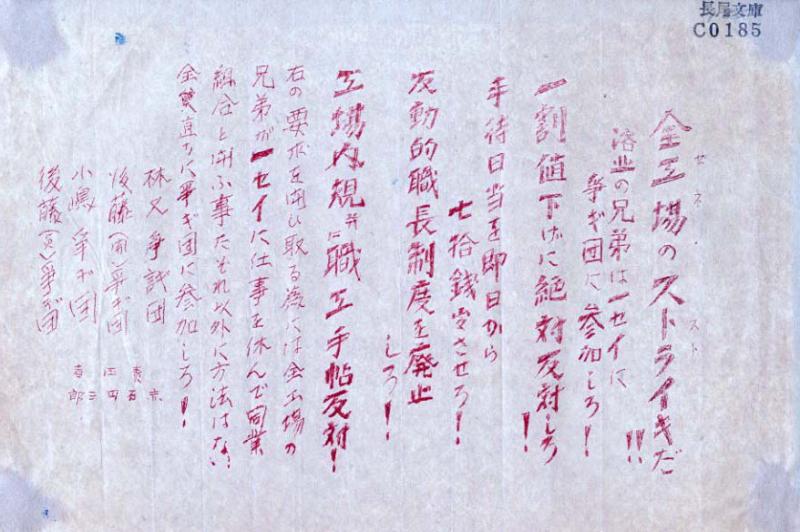 長尾文庫
C0185
全工場のストライキだ
ゼネ・スト
浴業の兄弟は一セイに
争ギ団に参加しろ!!!
一割値下げに絶対反対しろ!
手待日当を即日から
七拾銭出させろ!
反動的職長制度を廃止
しろ!
工場内規并に職工手帖反対!
右の要求を闘ひ取る為には全工場の
兄弟が一セイに仕事を休んで同業
組合と闘ふ事だそれ以外に方法はない
全員直ちに争ギ団に参加しろ!
林又争議団
後藤(同)争ギ団
小嶋争ギ団
後藤(寅)争ギ団